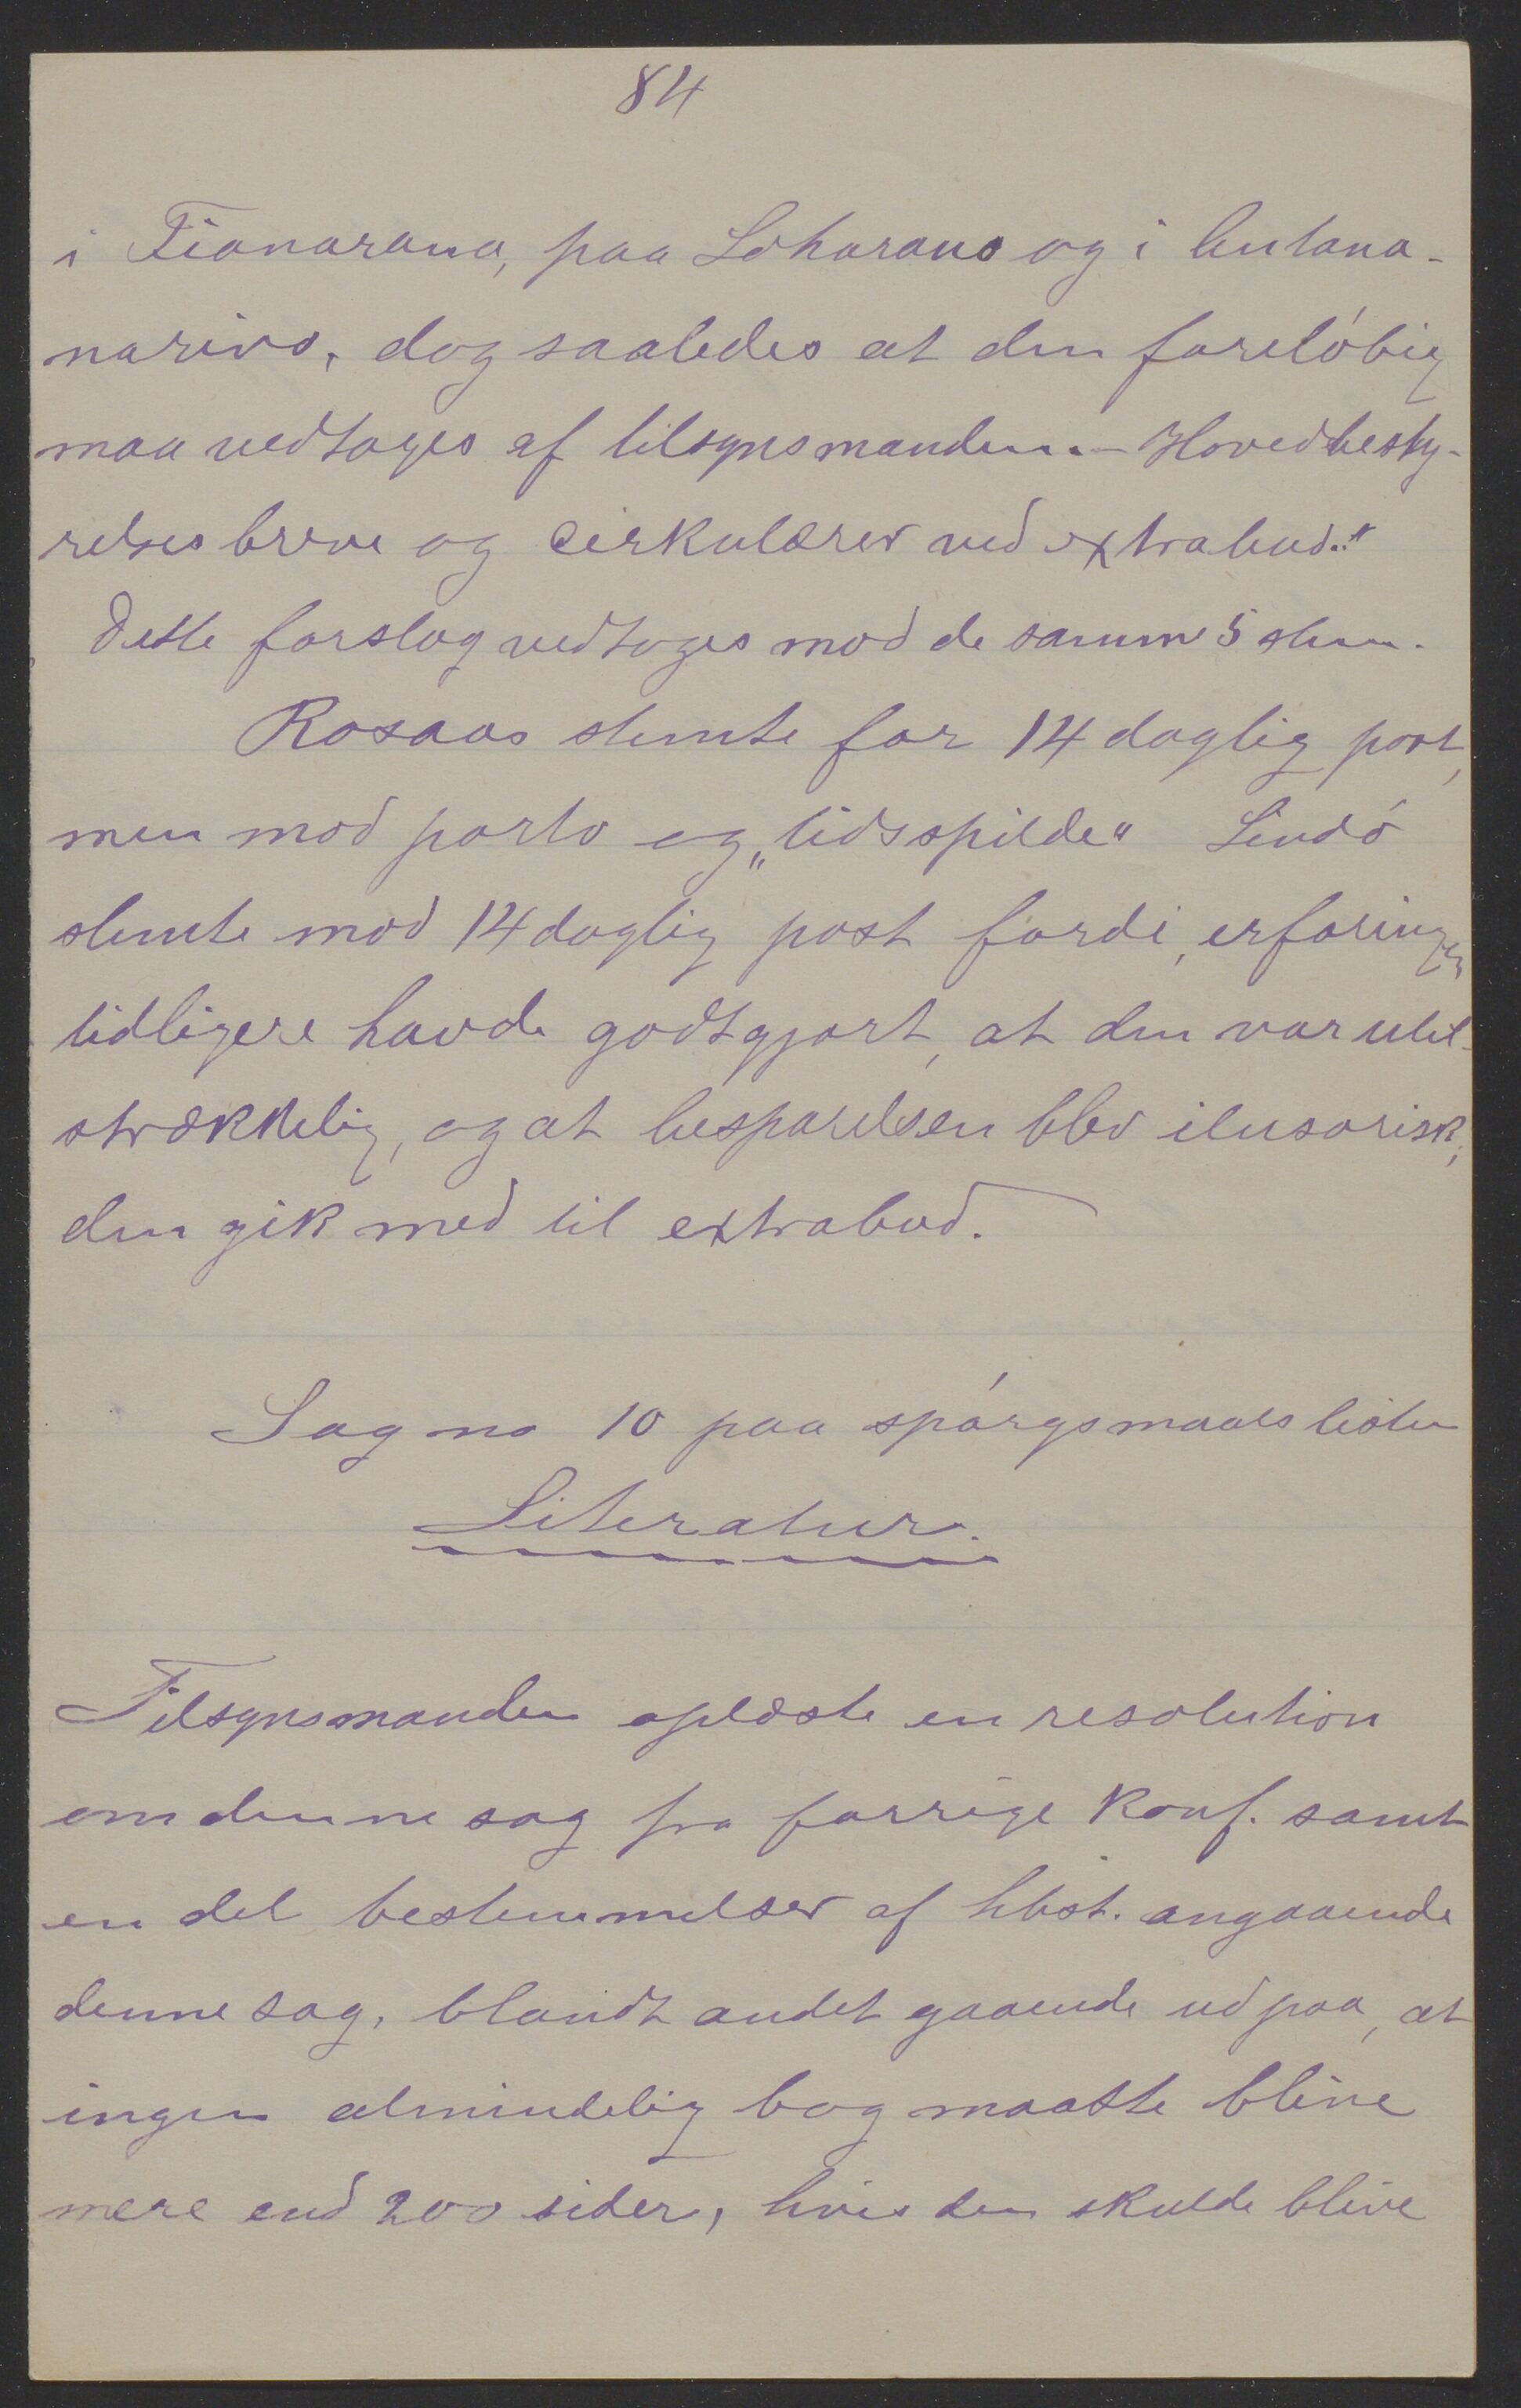 84
i Fianarana, paa Loharano og i Antana-
narivo, dog saaledes at den foreløbig
maa vedtages af tilsynsmanden. – Hovedbesty-
relses breve og cirkulærer ved extrabud."
Dette forslag vedtoges mod de samme 5 stem.
Rosaas stemte for 14 daglig post,
men mod porto og „tidsspilde" Lindø
stemte mod 14 daglig post fordi, erfaringen
tidligere havde godtgjort, at den var util-
strækkelig, og at besparelsen blev ilusorisk,
den gik med til extrabud.
Sag no 10 paa spørgsmaals listen
Literatur.
Tilsynsmanden oplæste en resolution
om denne sag fra forrige Konf. samt
en del bestemmelser af hbst. angaaende
denne sag, blandt andet gaaende ud paa, at
ingen almindelig bog maatte blive
mere end 200 sider, hvis den skulde blive